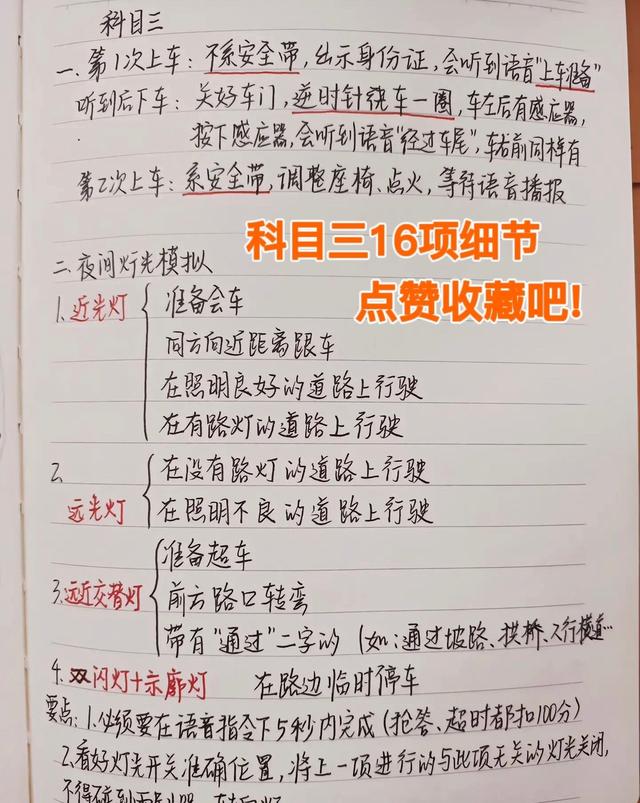 科目三
一、第1次上车：不系安全带，出示身份证，会听到语音"上车准备"
听到后下车：关好车门，逆时针绕车一圈，车左后有感应器，
按下感应器，会听到语音"经过车尾"，车右前同样有
第2次上车：系安全带，调整座椅、点火，等待语音播报
科目三16项细节
点赞收藏吧!
二.夜间灯光模拟
1.近光灯
准备会车
同方向近距离跟车
在照明良好的道路上行驶
在有路灯的道路上行驶
2.
远光灯
在没有路灯的道路上行驶
在照明不良的道路上行驶
3.远近交替灯
准备超车
前方路口转弯
带有"通过"二字的（如：通过坡路、拱桥、人行横道…
4.双闪灯+示廓灯 在路边临时停车
要点：1.必须要在语音指令下5秒内完成（抢答、超时都扣100分）
2.看好灯光开关准确位置，将上一项进行的与此项无关的灯光关闭，
不得碰到雨刮器